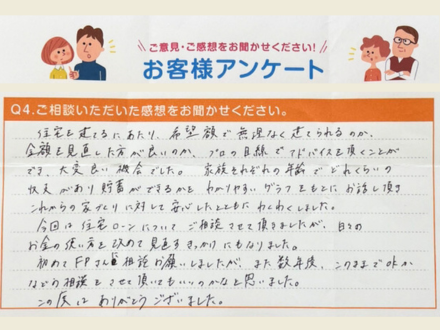 ご意見・ご感想をお聞かせください！
お客様アンケート
Q4.ご相談いただいた感想をお聞かせください。
住宅を建てるにあたり、希望額で無理なく建てられるのか、
金額を見直した方が良いのか、プロの目線でアドバイスを頂くことが
でき、大変良い機会でした。 家族それぞれの年齢でどれくらいの
収支があり貯蓄ができるかを わかりやすい グラフをもとにお話し頂き
これからの家づくりに対して安心したとともにわくわくしました。
今回は住宅ローンについて ご相談させて頂きましたが、日々の
お金の使い方を改めて見直すきっかけにもなりました。
初めてFPさんに相談お願いしましたが、また数年後、このままでOKか
などの相談をさせて頂いてもいいのかなと思いました。
この度は ありがとうございました。